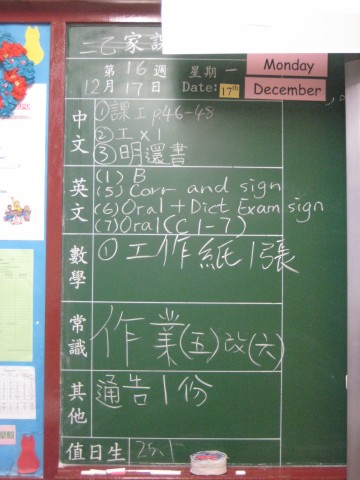 三乙家課
第16週 星期一 Monday
12月17日 Date: 17th December
中文
①課工p.46-48
②工x1
③明還書
英文
(1) B
(5) Corr and sign
(6) Oral + Dict Exam sign
(7) Oral (C1-7)
數學
①工作紙1張
常識
作業(五)改(六)
其他
通告1份
值日生 25,